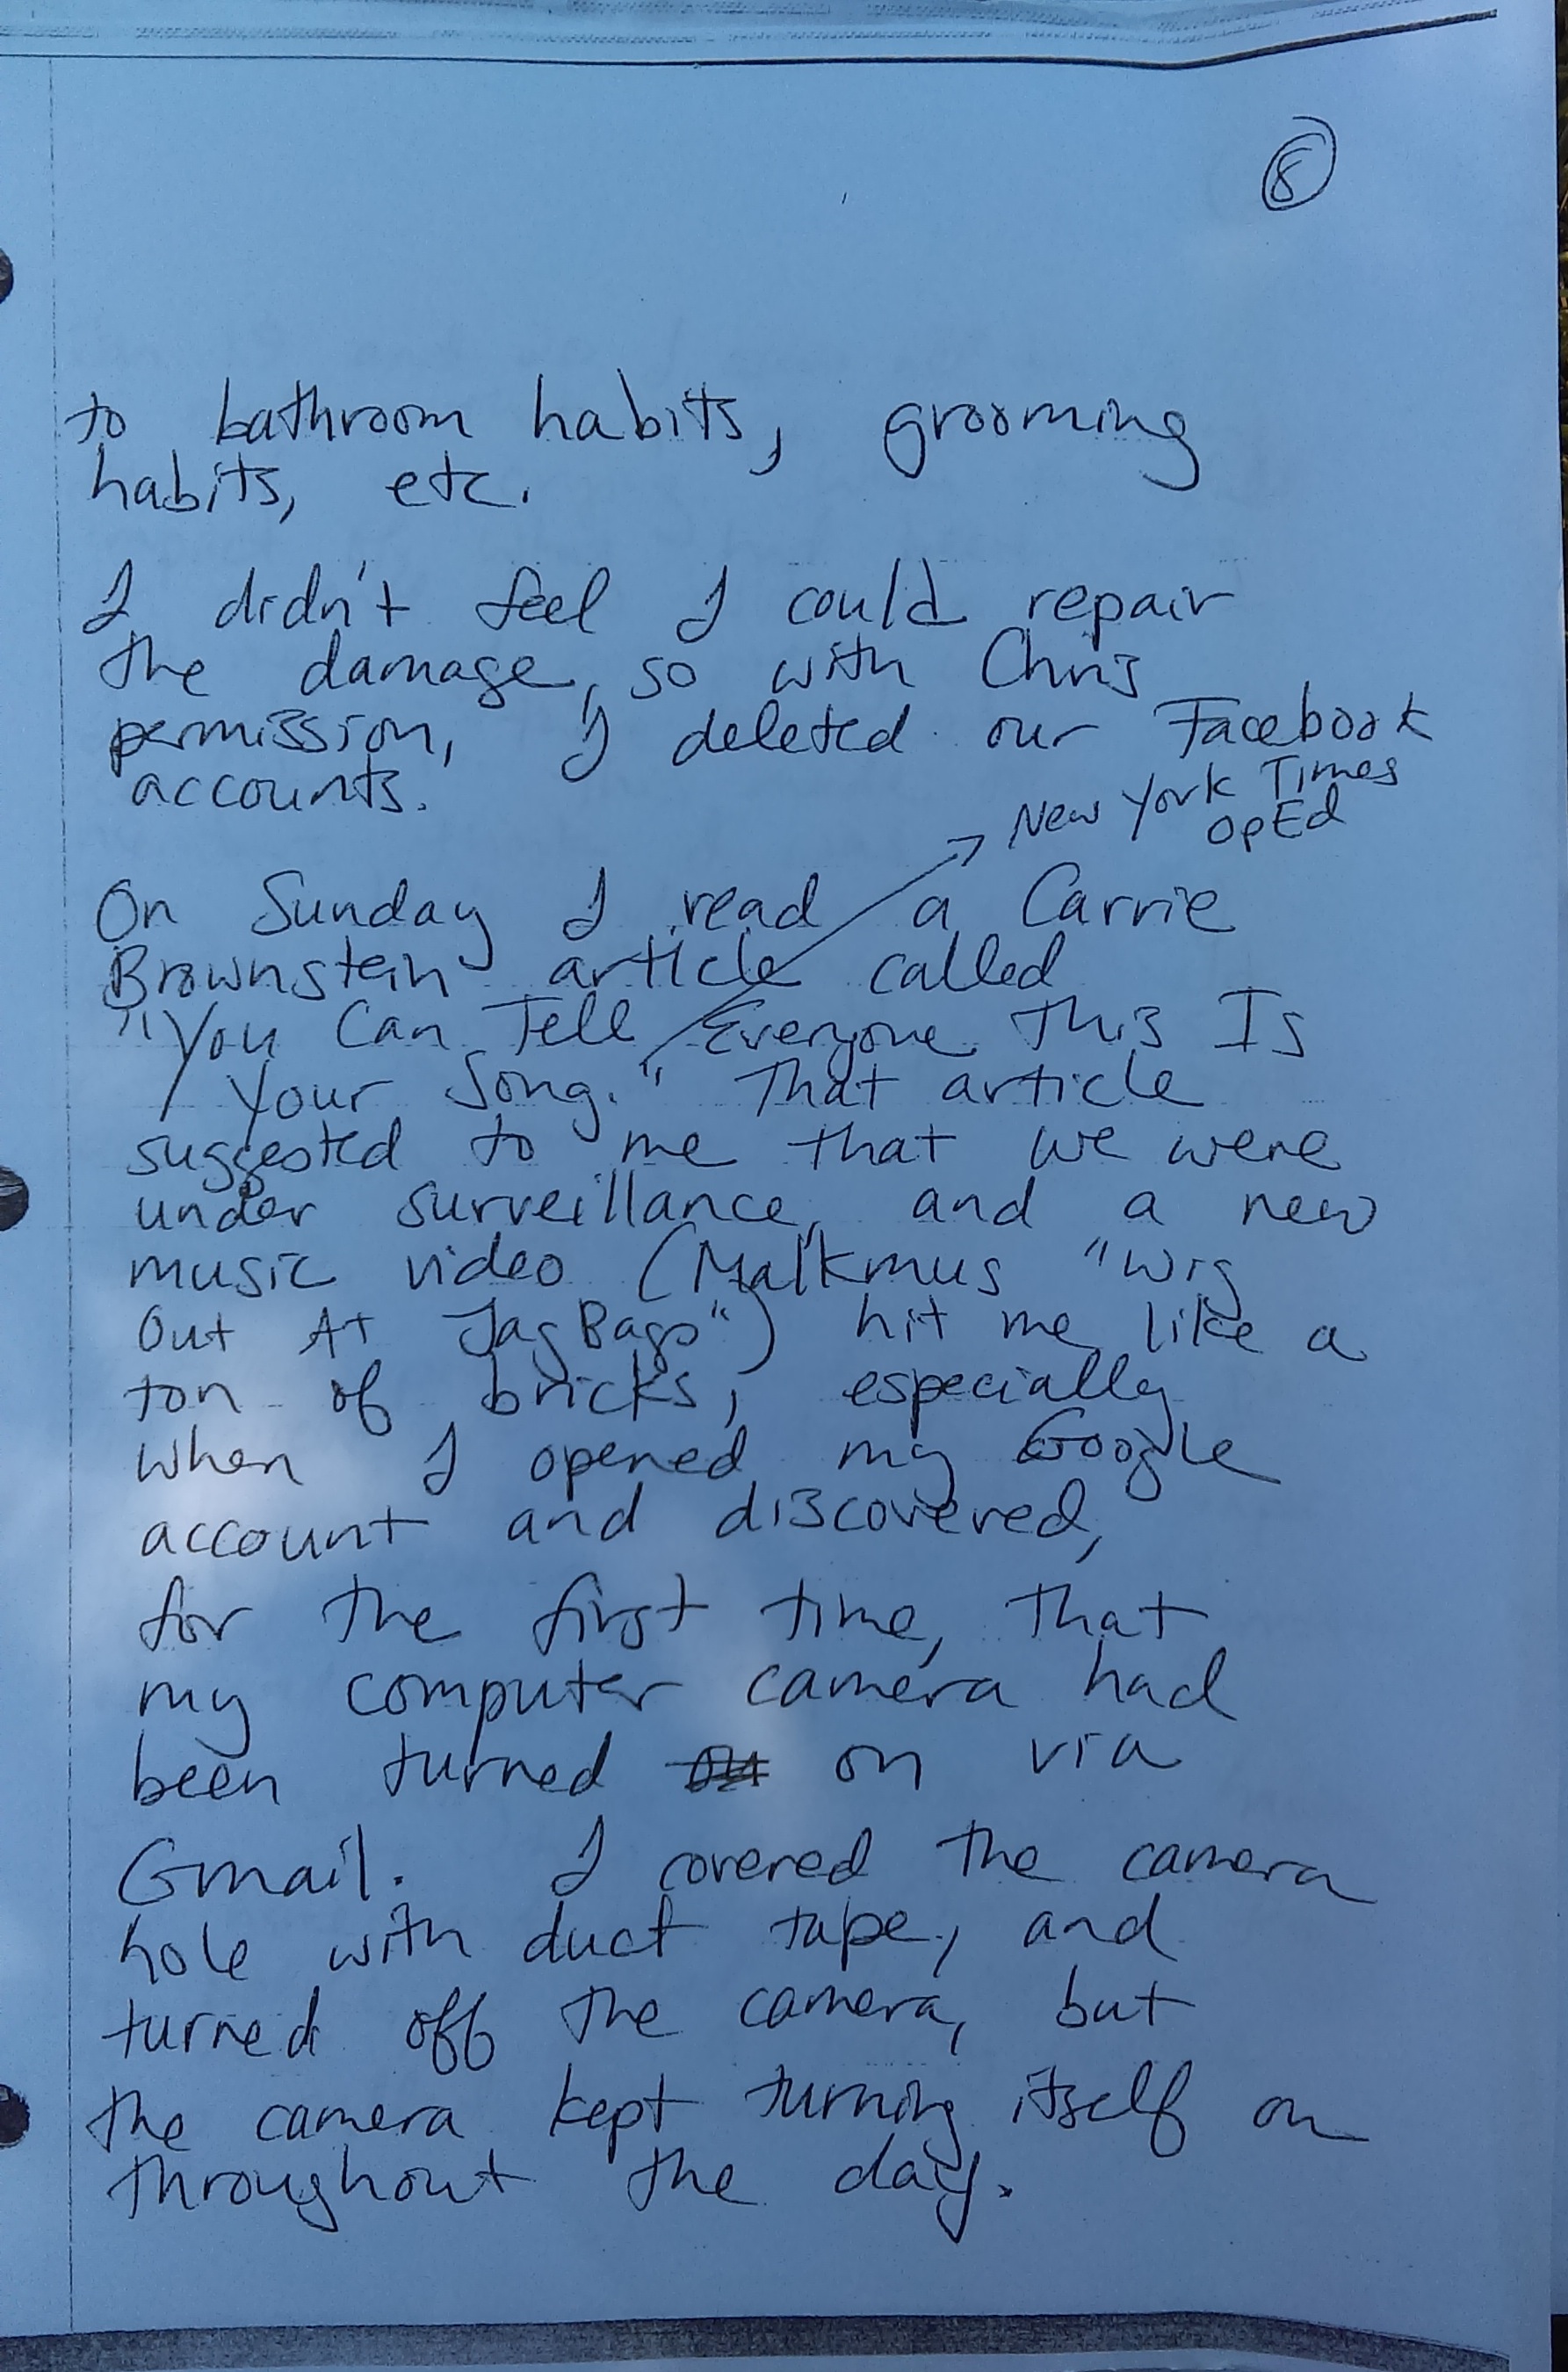 8
to bathroom habits, grooming
habits, etc.
I didn't feel I could repair
the damage, so with Chris
permission, I deleted our Facebook
accounts.
New York Times
OpEd
On Sunday I read a Carrie
Brownstein article called
"You Can Tell Everyone This Is
Your Song." That article
suggested to me that we were
under surveillance, and a new
music video (Malkmus "Wig
Out At JagBags") hit me like a
ton of bricks, especially
when I opened my Google
account and discovered,
for the first time, that
my computer camera had
been turned on via
Gmail. I covered the camera
hole with duct tape, and
turned off the camera, but
the camera kept turning itself on
throughout the day.